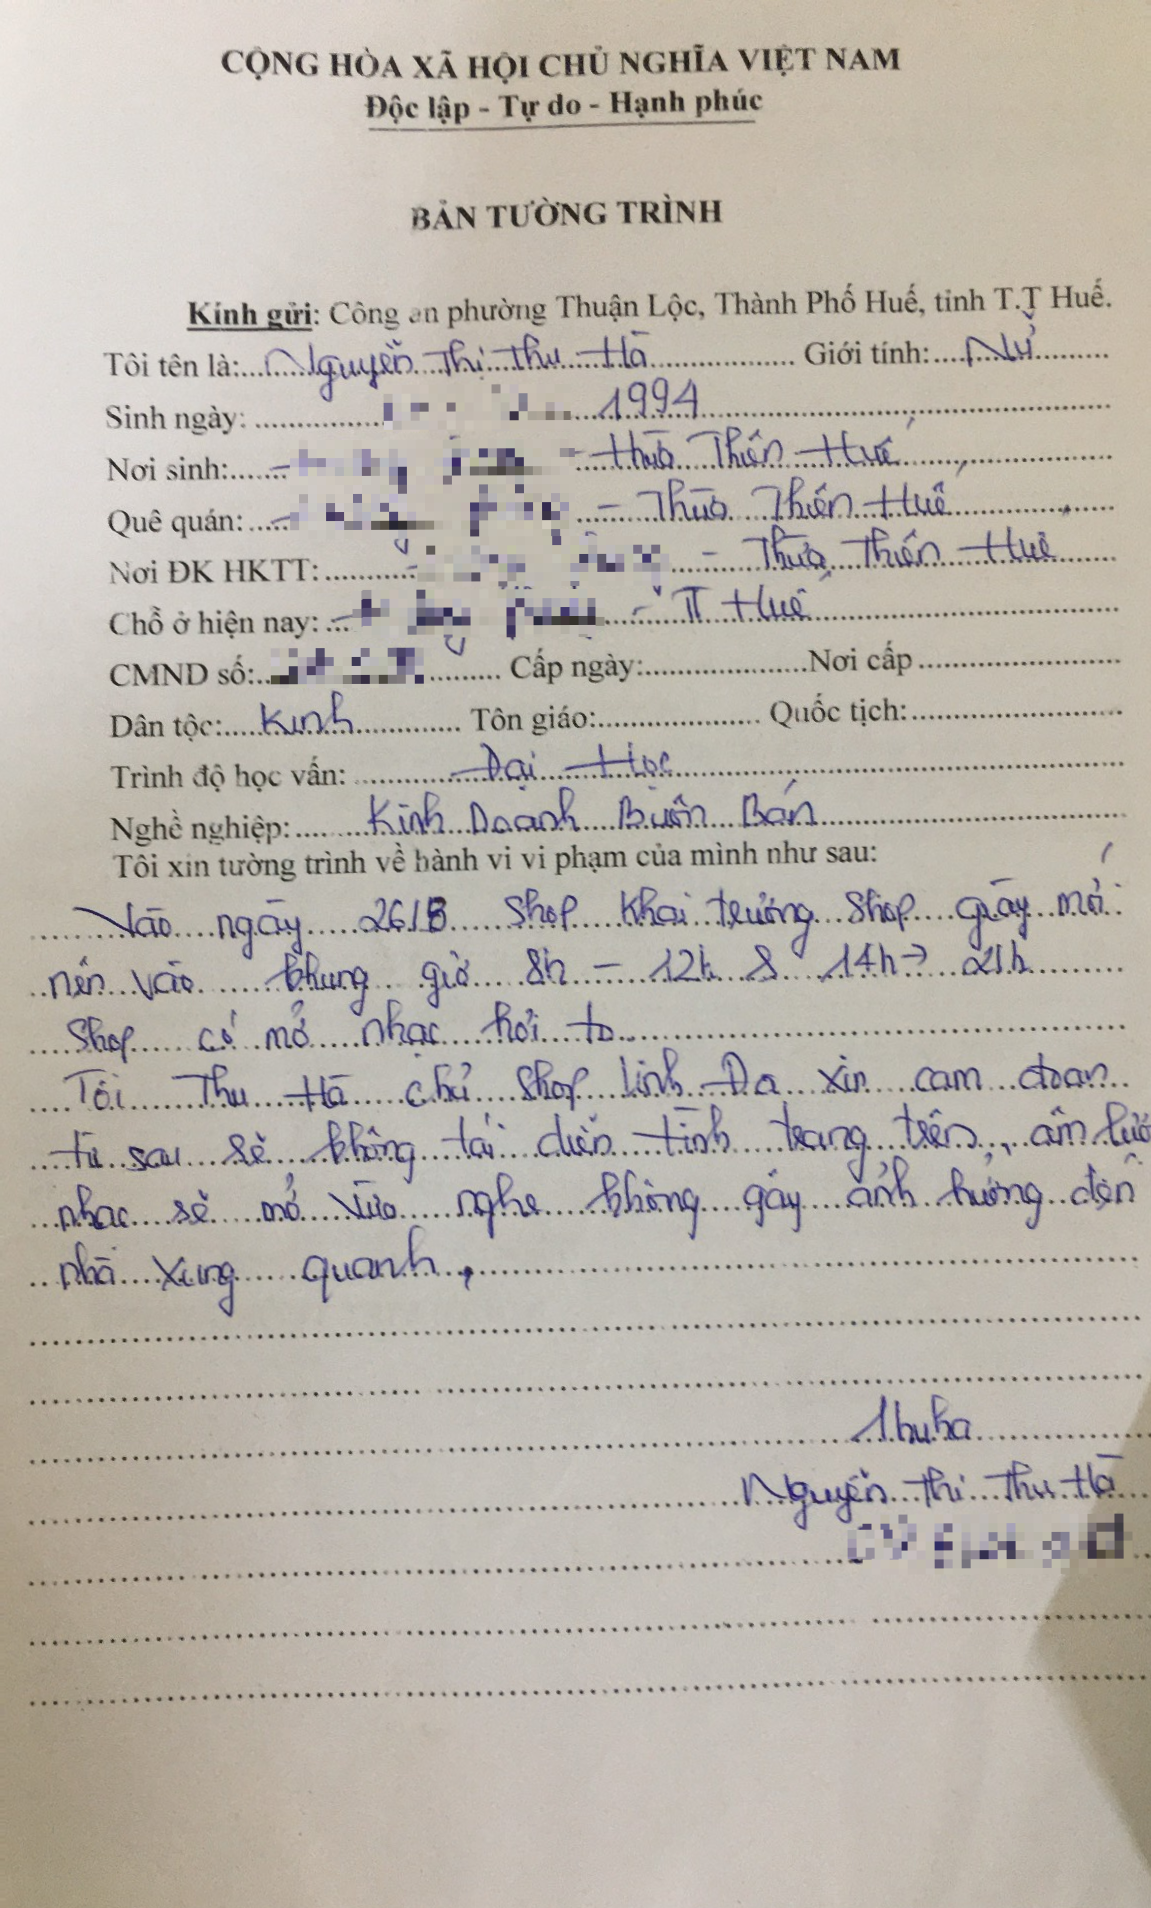 CỘNG HÒA XÃ HỘI CHỦ NGHĨA VIỆT NAM
Độc lập - Tự do - Hạnh phúc
BẢN TƯỜNG TRÌNH
Kính gửi: Công an phường Thuận Lộc, Thành Phố Huế, tỉnh T.T Huế.
Tôi tên là: Nguyễn Thị Thu Hà Giới tính: Nữ
Sinh ngày: 1994
Nơi sinh: Thừa Thiên Huế
Quê quán: - Thừa Thiên Huế
Nơi ĐK HKTT: - Thừa Thiên Huế
Chỗ ở hiện nay: - TT Huế
CMND số: Cấp ngày: Nơi cấp
Dân tộc: Kinh Tôn giáo: Quốc tịch:
Trình độ học vấn: Đại Học
Nghề nghiệp: Kinh Doanh Buôn Bán
Tôi xin tường trình về hành vi vi phạm của mình như sau:
Vào ngày shop khai trương shop giày mới
nên vào khung giờ 8h - 12h & 14h → 21h
shop có mở nhạc hơi to
Tôi Thu Hà chủ shop Linh Đa xin cam đoan
từ sau sẽ không tái diễn tình trạng trên, âm
nhạc sẽ mở vừa nghe không gây ảnh hưởng đến
nhà xung quanh,
Thuha
Nguyễn Thi Thu Hà